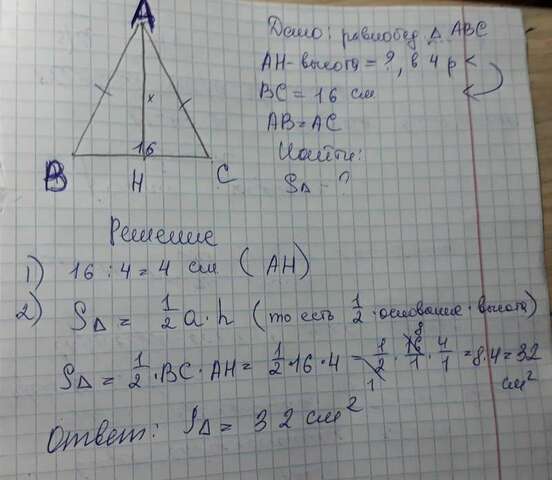 A
x
16
B
H
C
Дано: равнобед. Δ ABC
AH - высота = ?, в 4 р <
BC = 16 см <
AB = AC
Найти:
SΔ - ?
Решение
1) 16 : 4 = 4 см (AH)
2) SΔ = 1/2 a · h (то есть 1/2 · основание · высота)
SΔ = 1/2 · BC · AH = 1/2 · 16 · 4 = 1/2 · 16/1 · 4/1 = 8 · 4 = 32 см²
8
1
Ответ: SΔ = 32 см²